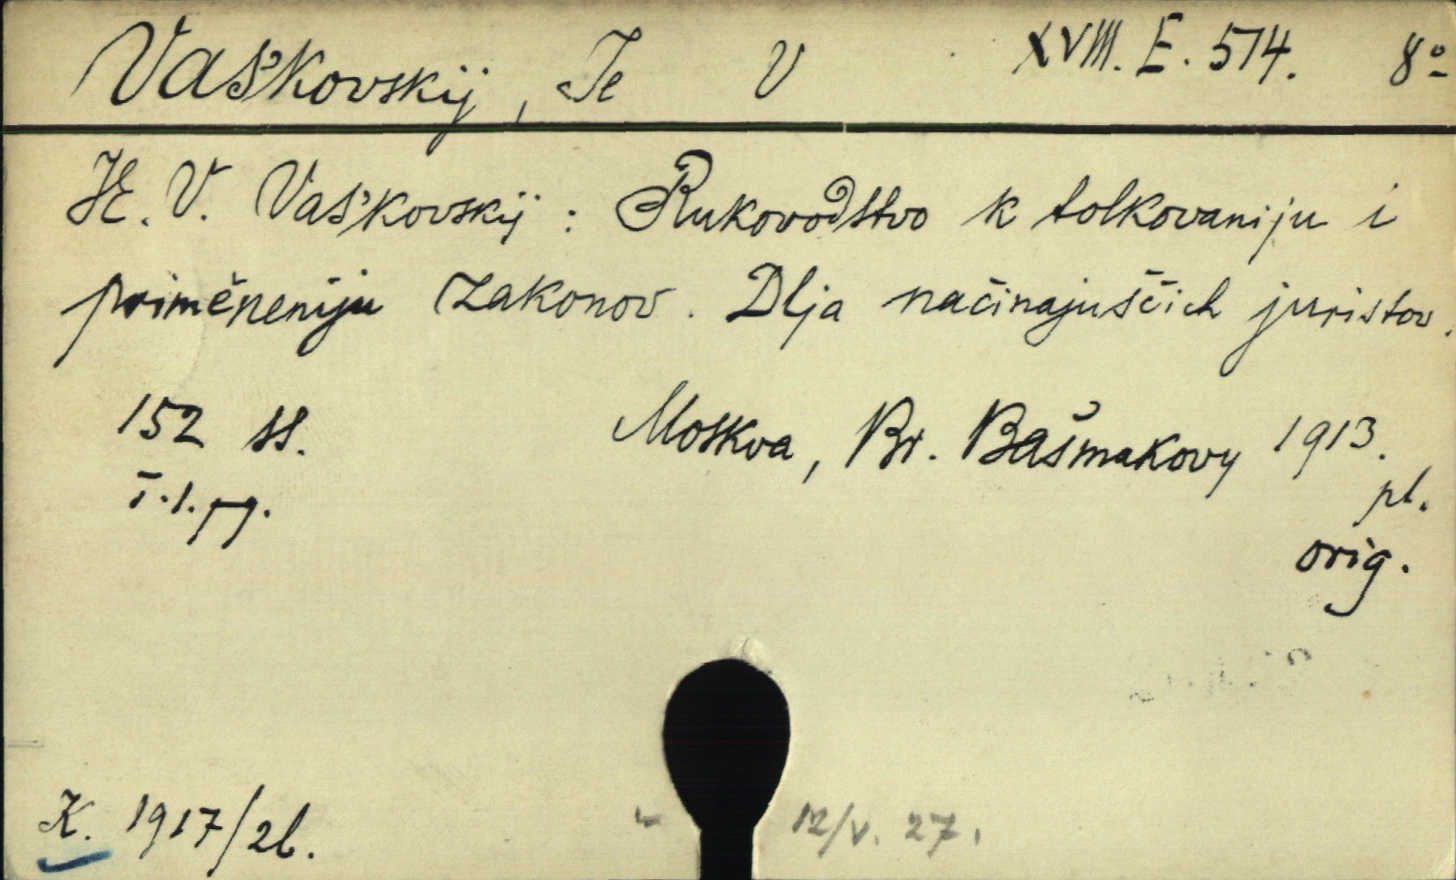 Vaškovskij, Je V XVIII. E. 514. 8º
JE. V. Vaškovskij: Rukovodstvo k tolkovaniju i
priměneniju zakonov. Dlja načinajuščich juristov.
152 ss. Moskva, Br. Bašmakovy 1913.
pl.
orig.
K. 1917/26. 12/V. 27.